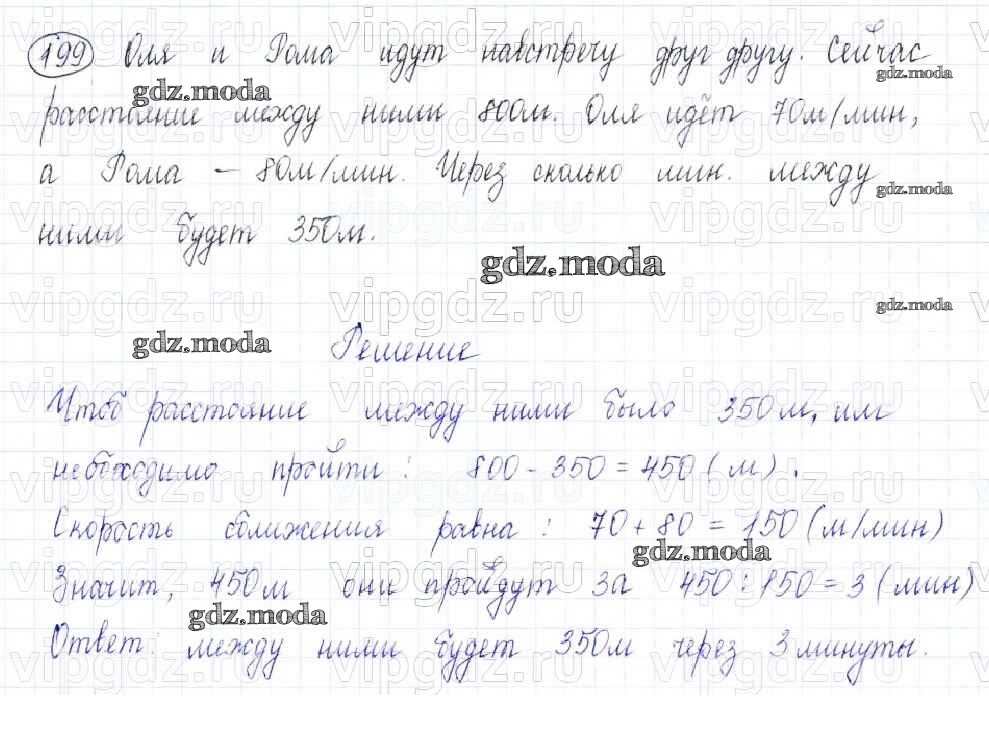 199 Оля и Рома идут навстречу друг другу. Сейчас
расстояние между ними 800м. Оля идёт 70м/мин,
а Рома – 80м/мин. Через сколько мин. между
ними будет 350м.
Решение
Чтоб расстояние между ними было 350м, им
необходимо пройти: 800 - 350 = 450 (м).
Скорость сближения равна: 70 + 80 = 150 (м/мин)
Значит, 450м они пройдут за 450 : 150 = 3 (мин)
Ответ: между ними будет 350м через 3 минуты.
gdz.moda
vipgdz.ru